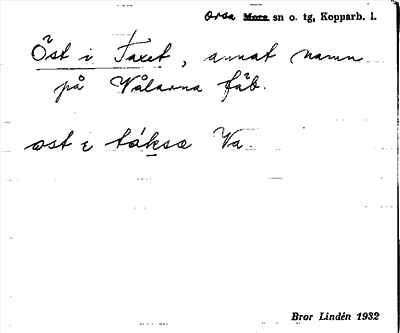 Orsa Mora sn o. tg, Kopparb. l.
Öst i Taxet, annat namn
på Vålarna fäb.
øst i táksə Va.
Bror Lindén 1932